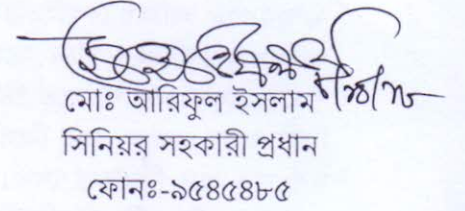 মোঃ আরিফুল ইসলাম
সিনিয়র সহকারী প্রধান
ফোনঃ-৯৫৪৫৪৮৫